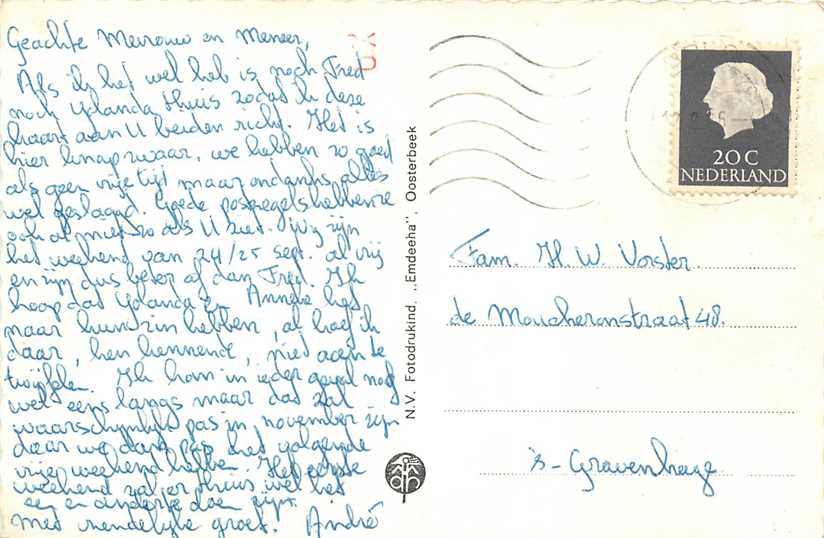 Geachte Mevrouw en Meneer,
Als ik het wel heb is noch Fred
noch Yolanda thuis zodat ik deze
kaart aan U beiden richt. Het is
hier knap zwaar, we hebben zo goed
als geen vrije tijd maar ondanks alles
wel geslaagd. Goede postzegels hebben ze
ook al niet zo als U ziet. Wij zijn
het weekend van 24/25 sept. al vrij
en zijn dus beter af dan Fred. Ik
hoop dat Yolanda en Anneke het
naar hun zin hebben, al hoef ik
daar, hen kennende, niet aan te
twijfelen. Ik kom in ieder geval nog
wel eens langs maar dat zal
waarschijnlijk pas in november zijn
daar we dan pas het volgende
vrije weekend hebben. Het eerste
weekend zal er thuis wel het
een en ander te doen zijn.
Met vriendelijke groet, André
N.V. Fotodrukind. „Emdeeha”. Oosterbeek
20 C
NEDERLAND
Fam. H. W. Vorster
de Moucheronstraat 48.
's-Gravenhage